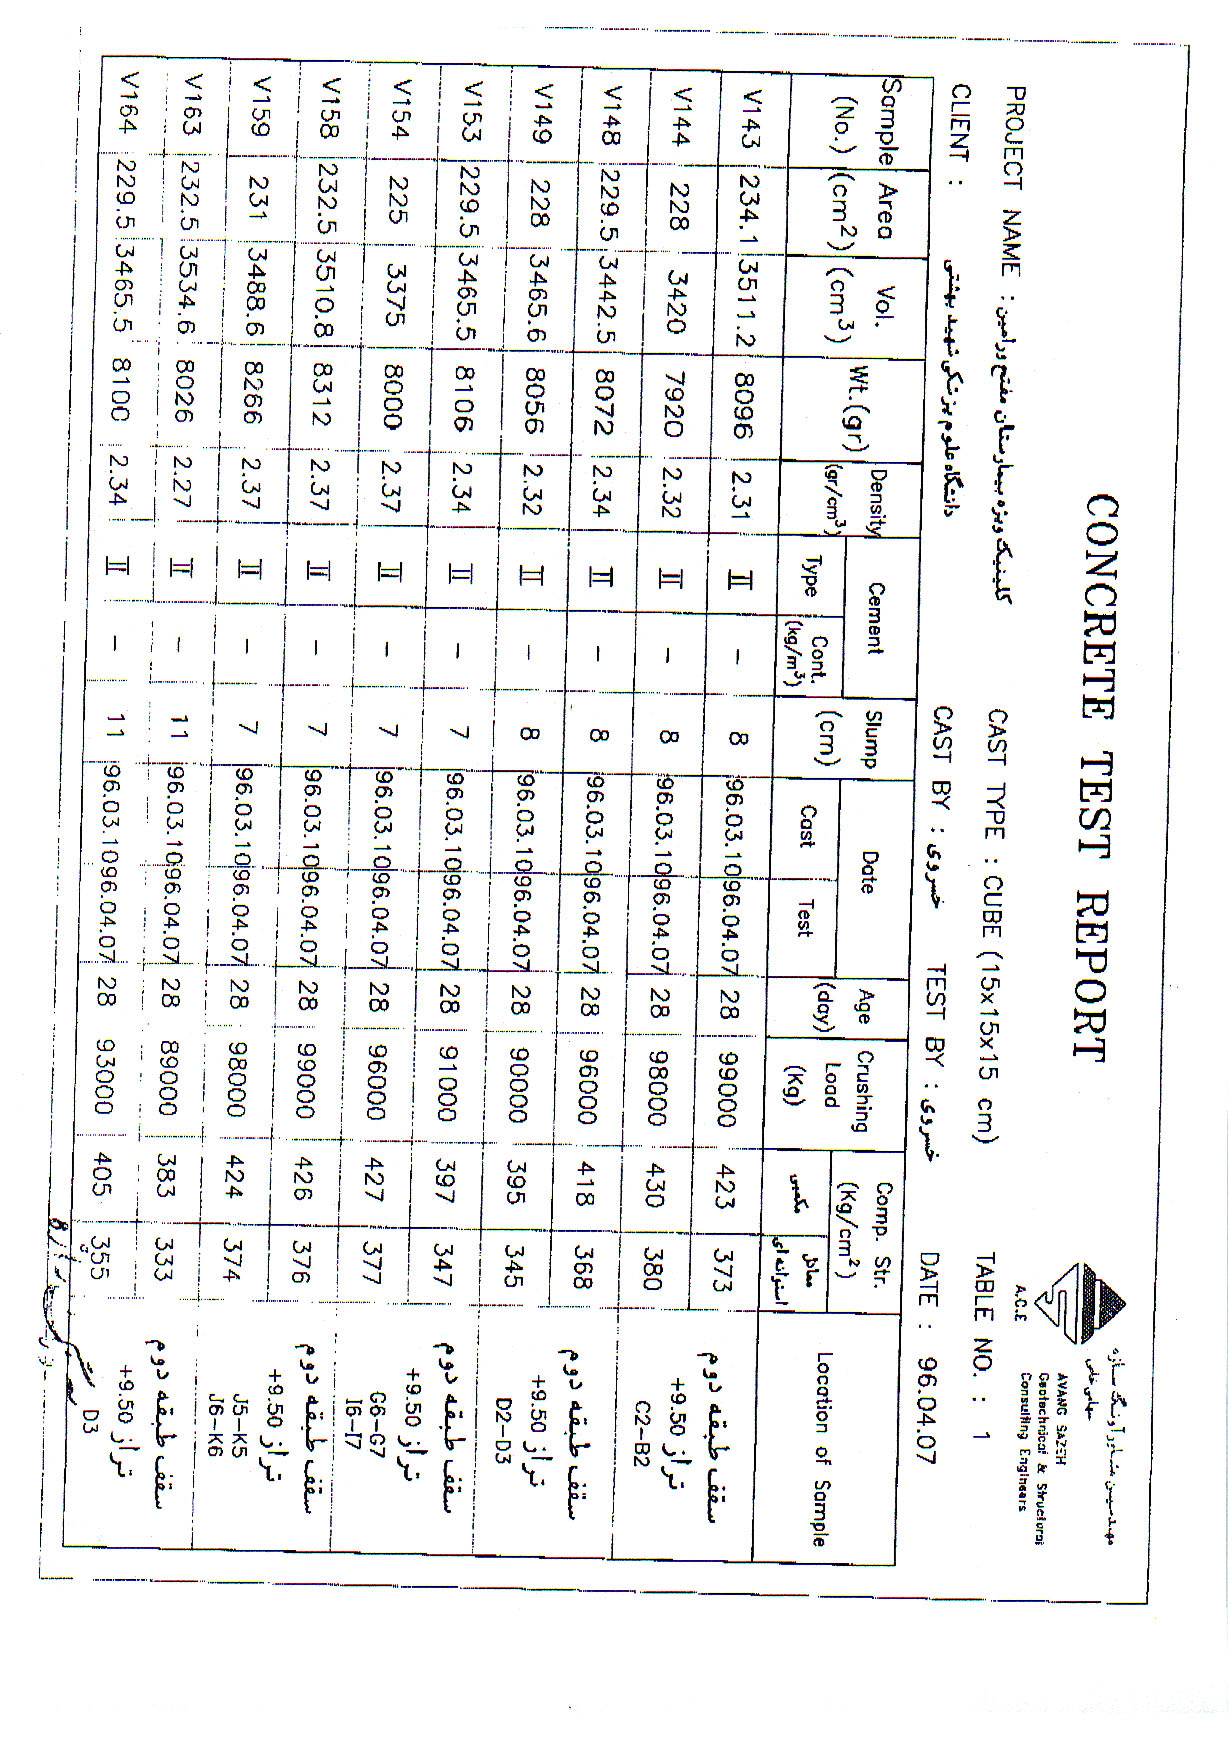 CONCRETE TEST REPORT
مهندسین مشاور آونگ سازه
سهامی خاص
AVANG SAZEH
Geotechnical & Structural
Consulting Engineers
A.C.E
PROJECT NAME : کلینیک ویژه بیمارستان مفتح ورامین
CAST TYPE : CUBE (15x15x15 cm)
TABLE NO. : 1
CLIENT : دانشگاه علوم پزشکی شهید بهشتی
CAST BY : خسروی
TEST BY : خسروی
DATE : 96.04.07
Sample (No.) Area (cm²) Vol. (cm³) Wt.(gr) Density (gr/cm³) Cement Type Cont. (kg/m³) Slump (cm) Date Cast Test Age (day) Crushing Load (Kg) Comp. Str. (Kg/cm²) مکعبی معادل استوانه ای Location of Sample
V143 234.1 3511.2 8096 2.31 II - 8 96.03.10 96.04.07 28 99000 423 373
V144 228 3420 7920 2.32 II - 8 96.03.10 96.04.07 28 98000 430 380
سقف طبقه دوم
تراز +9.50
C2-B2
V148 229.5 3442.5 8072 2.34 II - 8 96.03.10 96.04.07 28 96000 418 368
V149 228 3465.6 8056 2.32 II - 8 96.03.10 96.04.07 28 90000 395 345
سقف طبقه دوم
تراز +9.50
D2-D3
V153 229.5 3465.5 8106 2.34 II - 7 96.03.10 96.04.07 28 91000 397 347
V154 225 3375 8000 2.37 II - 7 96.03.10 96.04.07 28 96000 427 377
سقف طبقه دوم
تراز +9.50
G6-G7
I6-I7
V158 232.5 3510.8 8312 2.37 II - 7 96.03.10 96.04.07 28 99000 426 376
V159 231 3488.6 8266 2.37 II - 7 96.03.10 96.04.07 28 98000 424 374
سقف طبقه دوم
تراز +9.50
J5-K5
J6-K6
V163 232.5 3534.6 8026 2.27 II - 11 96.03.10 96.04.07 28 89000 383 333
V164 229.5 3465.5 8100 2.34 II - 11 96.03.10 96.04.07 28 93000 405 355
سقف طبقه دوم
تراز +9.50
D3